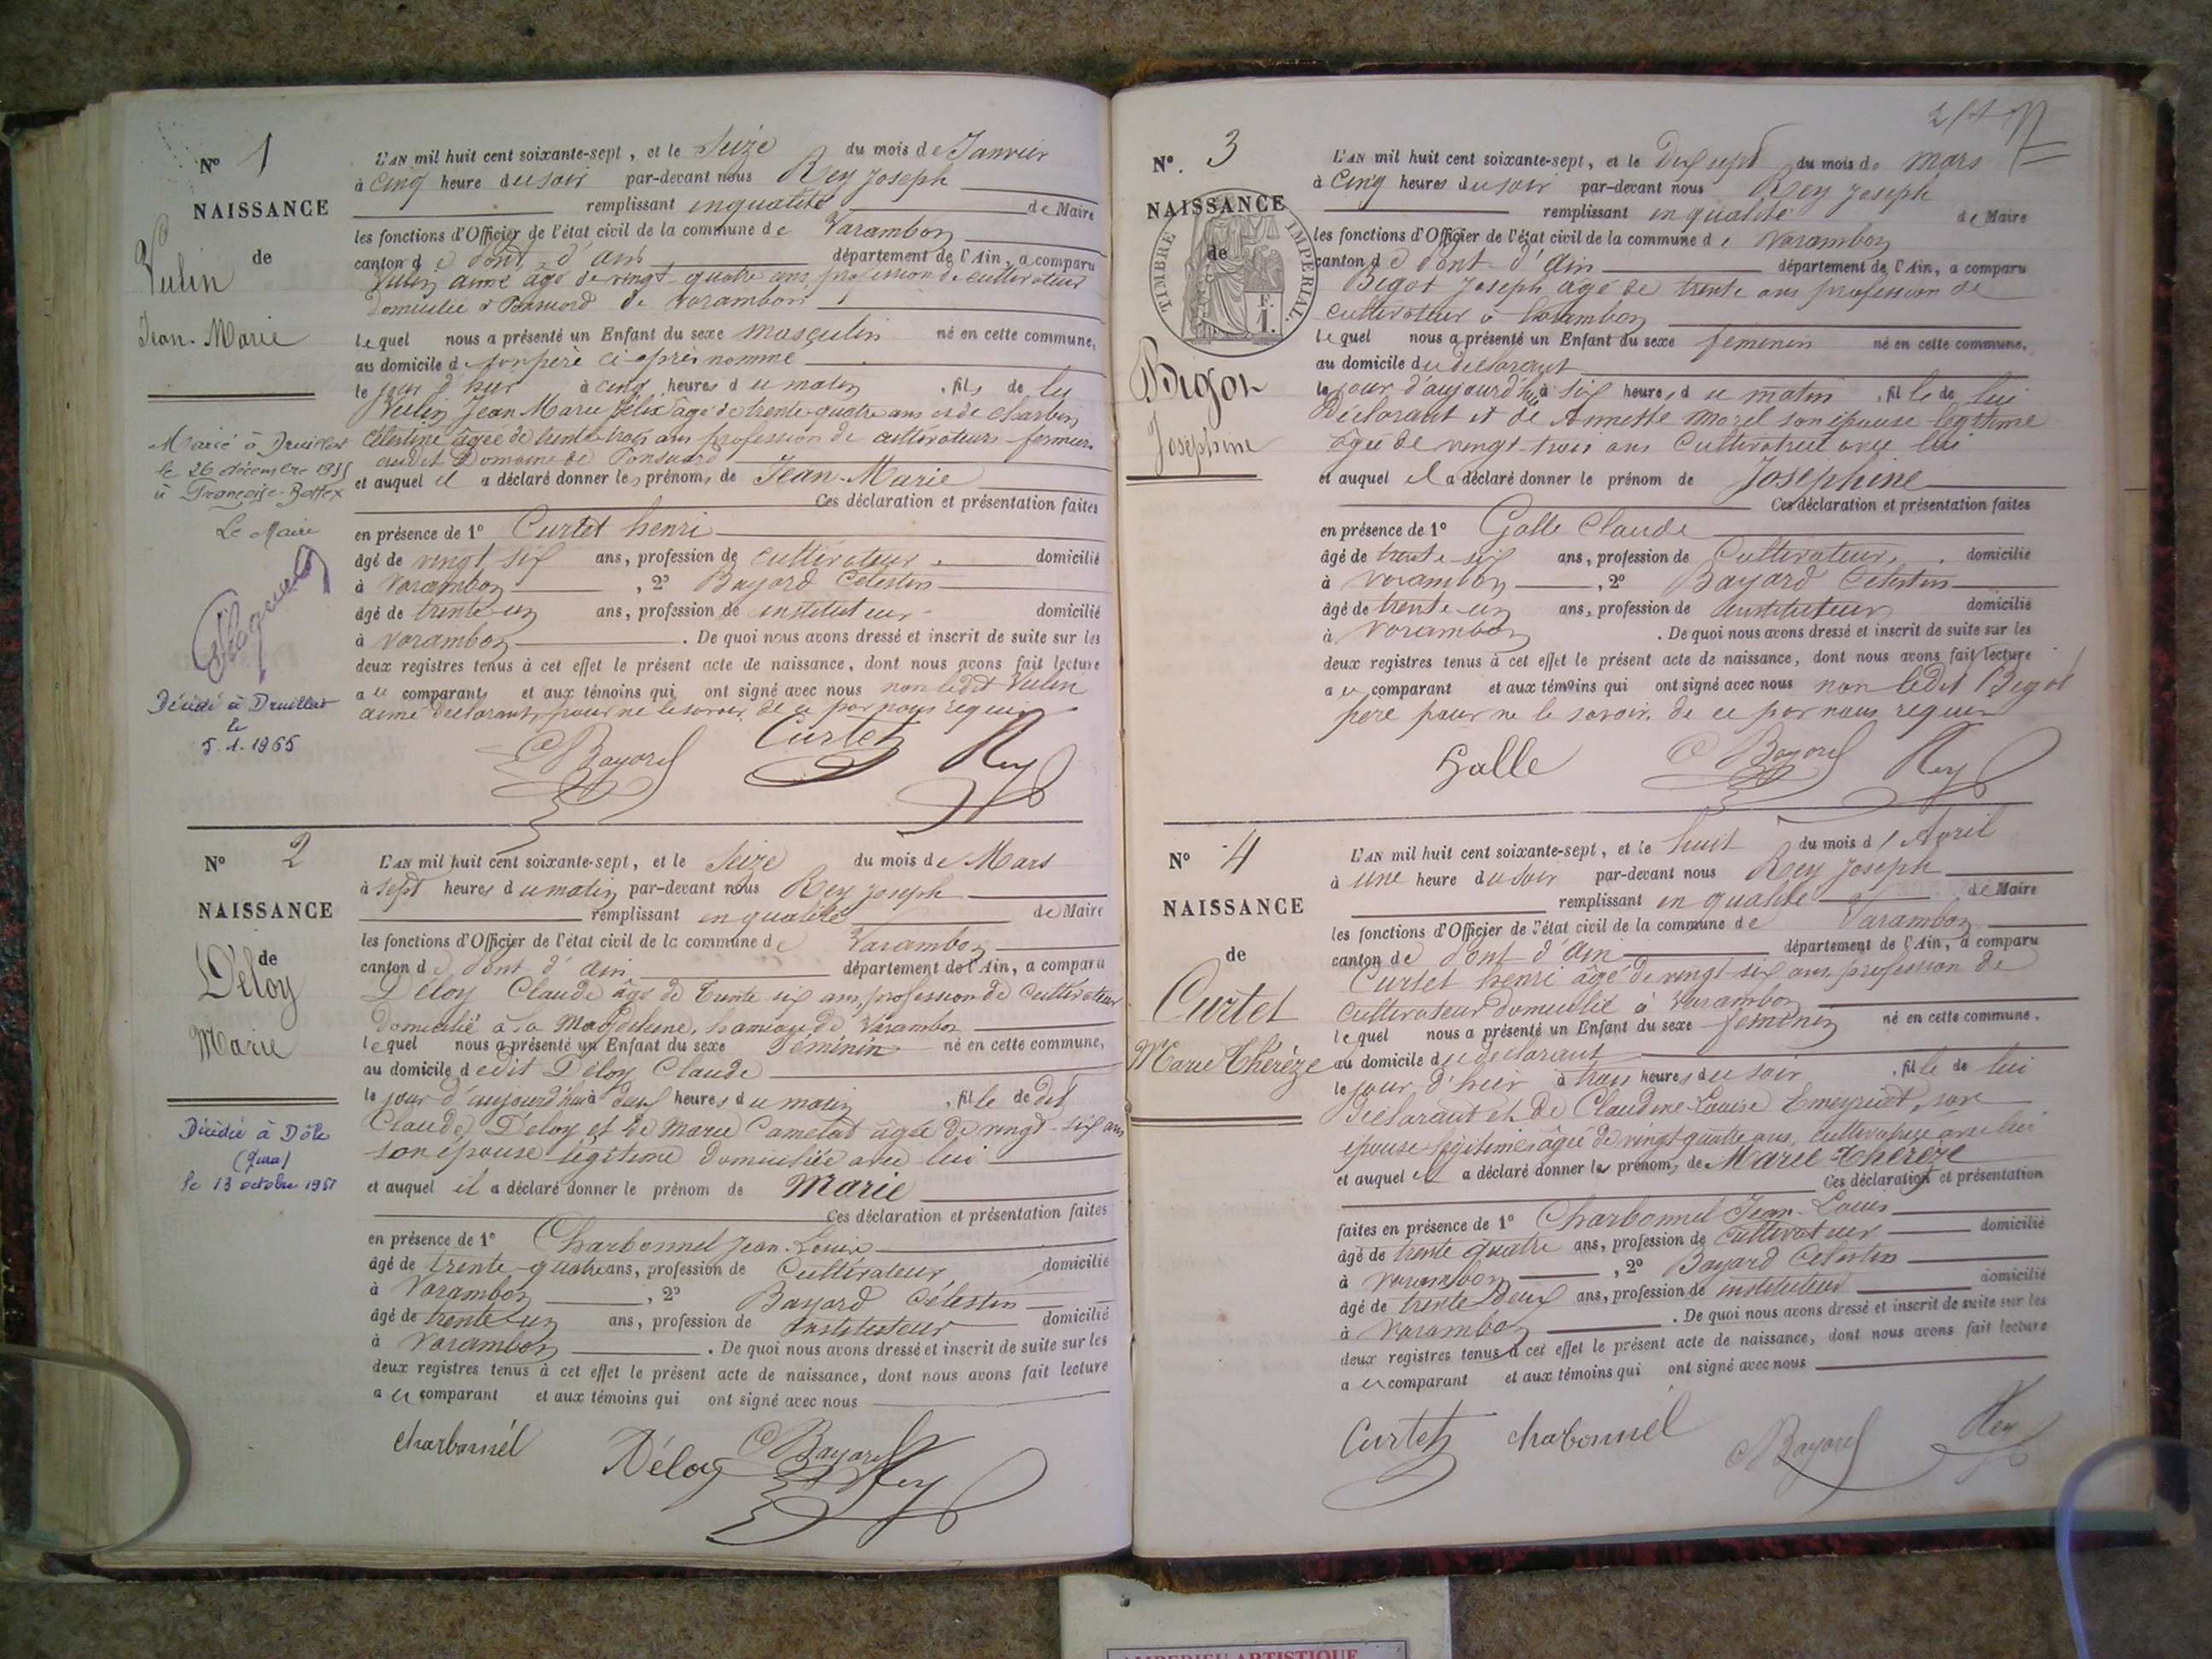 Nº 1
NAISSANCE
de
Vulin
Jean-Marie
Marié à Druillat
le 26 décembre 1955
à Françoise Bottex
Le Maire
Décédé à Druillat
le
5.1.1965
L'AN mil huit cent soixante-sept, et le Seize du mois de Janvier
à cinq heure du soir par-devant nous Rey Joseph
remplissant en qualité de Maire
les fonctions d'Officier de l'état civil de la commune de Varambon
canton de Pont d'ain département de l'Ain, a comparu
Vulin aimé âgé de vingt quatre ans, profession de cultivateur
domicilié à Ponsuard de Varambon
lequel nous a présenté un Enfant du sexe masculin né en cette commune,
au domicile de son père ci-après nommé
le jour d'hier à cinq heures du matin, fils de
Vulin Jean Marie félix âgé de trente-quatre ans et de Charbin
Célestine âgée de trente-trois ans profession de cultivateurs-fermiers
audit Domaine de Ponsuard
et auquel il a déclaré donner les prénoms de Jean-Marie
Ces déclaration et présentation faites
en présence de 1º Curtet henri
âgé de vingt six ans, profession de cultivateur domicilié
à Varambon, 2º Bayard Célestin
âgé de trente-un ans, profession de instituteur domicilié
à Varambon. De quoi nous avons dressé et inscrit de suite sur les
deux registres tenus à cet effet le présent acte de naissance, dont nous avons fait lecture
aux comparants et aux témoins qui ont signé avec nous non ledit Vulin
aimé déclarant, pour ne le savoir, de ce par nous requis
C Bayard Curtet Rey
Nº 2
NAISSANCE
de
Déloy
Marie
Décédée à Dôle
(Jura)
le 13 octobre 1951
L'AN mil huit cent soixante-sept, et le Seize du mois de Mars
à sept heures du matin par-devant nous Rey Joseph
remplissant en qualité de Maire
les fonctions d'Officier de l'état civil de la commune de Varambon
canton de Pont d'ain département de l'Ain, a comparu
Déloy Claude âgé de trente six ans, profession de Cultivateur
domicilié à la Magdeleine, hameau de Varambon
lequel nous a présenté un Enfant du sexe Féminin né en cette commune,
au domicile dedit Déloy Claude
le jour d'aujourd'hui à deux heures du matin, fille de dit
Claude Déloy et de Marie Camelat âgée de vingt-six ans
son épouse légitime domiciliée avec lui
et auquel il a déclaré donner le prénom de Marie
Ces déclaration et présentation faites
en présence de 1º Charbonnel Jean-Louis
âgé de trente-quatre ans, profession de Cultivateur domicilié
à Varambon, 2º Bayard Célestin
âgé de trente-un ans, profession de Instituteur domicilié
à Varambon. De quoi nous avons dressé et inscrit de suite sur les
deux registres tenus à cet effet le présent acte de naissance, dont nous avons fait lecture
au comparant et aux témoins qui ont signé avec nous
charbonnél Déloy C Bayard Rey
Nº. 3
NAISSANCE
de
TIMBRE IMPERIAL
1 F.
Bigot
Joséphine
L'AN mil huit cent soixante-sept, et le Dix sept du mois de mars
à Cinq heures du soir par-devant nous Rey Joseph
remplissant en qualité de Maire
les fonctions d'Officier de l'état civil de la commune de Varambon
canton de Pont-d'Ain département de l'Ain, a comparu
Bigot Joseph âgé de trente ans profession de
cultivateur à Varambon
lequel nous a présenté un Enfant du sexe féminin né en cette commune.
au domicile du déclarant
le jour d'aujourd'hui à six heures du matin, fille de lui
Déclarant et de Annette Morel son épouse légitime
âgée de vingt-trois ans Cultivatrice avec lui
et auquel il a déclaré donner le prénom de Joséphine
Ces déclaration et présentation faites
en présence de 1º Galle Claude
âgé de trente-six ans, profession de Cultivateur, domicilié
à Varambon, 2º Bayard Célestin
âgé de trente-un ans, profession de instituteur domicilié
à Varambon. De quoi nous avons dressé et inscrit de suite sur les
deux registres tenus à cet effet le présent acte de naissance, dont nous avons fait lecture
au comparant et aux témoins qui ont signé avec nous non ledit Bigot
père pour ne le savoir, de ce par nous requis
Galle C Bayard Rey
Nº 4
NAISSANCE
de
Curtet
Marie Thérèze
L'AN mil huit cent soixante-sept, et le huit du mois d'Avril
à une heure du soir par-devant nous Rey Joseph
remplissant en qualité de Maire
les fonctions d'Officier de l'état civil de la commune de Varambon
canton de Pont-d'Ain département de l'Ain, a comparu
Curtet henri âgé de vingt-six ans, profession de
cultivateur domicilié à Varambon
lequel nous a présenté un Enfant du sexe féminin né en cette commune.
au domicile du déclarant
le jour d'hier à trois heures du soir, fille de lui
Déclarant et de Claudine-Louise Emeyriat, son
épouse légitime âgée de vingt-quatre ans, cultivatrice avec lui
et auquel il a déclaré donner le prénom, de Marie Thérèze
Ces déclaration et présentation
faites en présence de 1º Charbonnel Jean-Louis
âgé de trente quatre ans, profession de Cultivateur domicilié
à Varambon, 2º Bayard Célestin
âgé de trente deux ans, profession de instituteur domicilié
à Varambon. De quoi nous avons dressé et inscrit de suite sur les
deux registres tenus à cet effet le présent acte de naissance, dont nous avons fait lecture
au comparant et aux témoins qui ont signé avec nous
Curtet chabonnél C Bayard Rey
AMBERIEU ARTISTIQUE